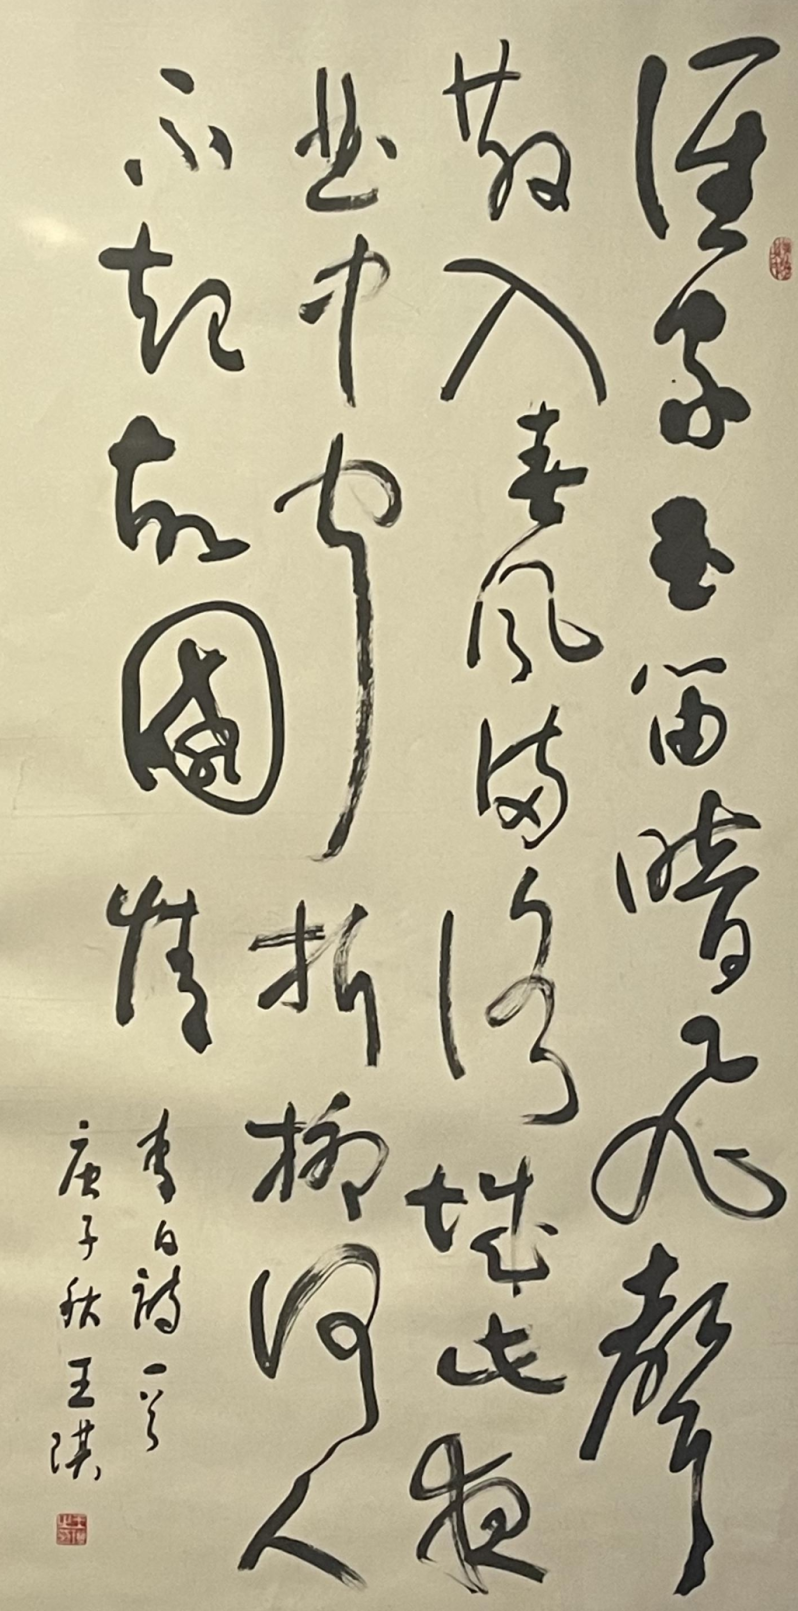 誰家玉笛暗飛聲
散入春風滿洛城此夜
曲中聞折柳何人
不起故國情
李白詩一首
庚子秋王琪